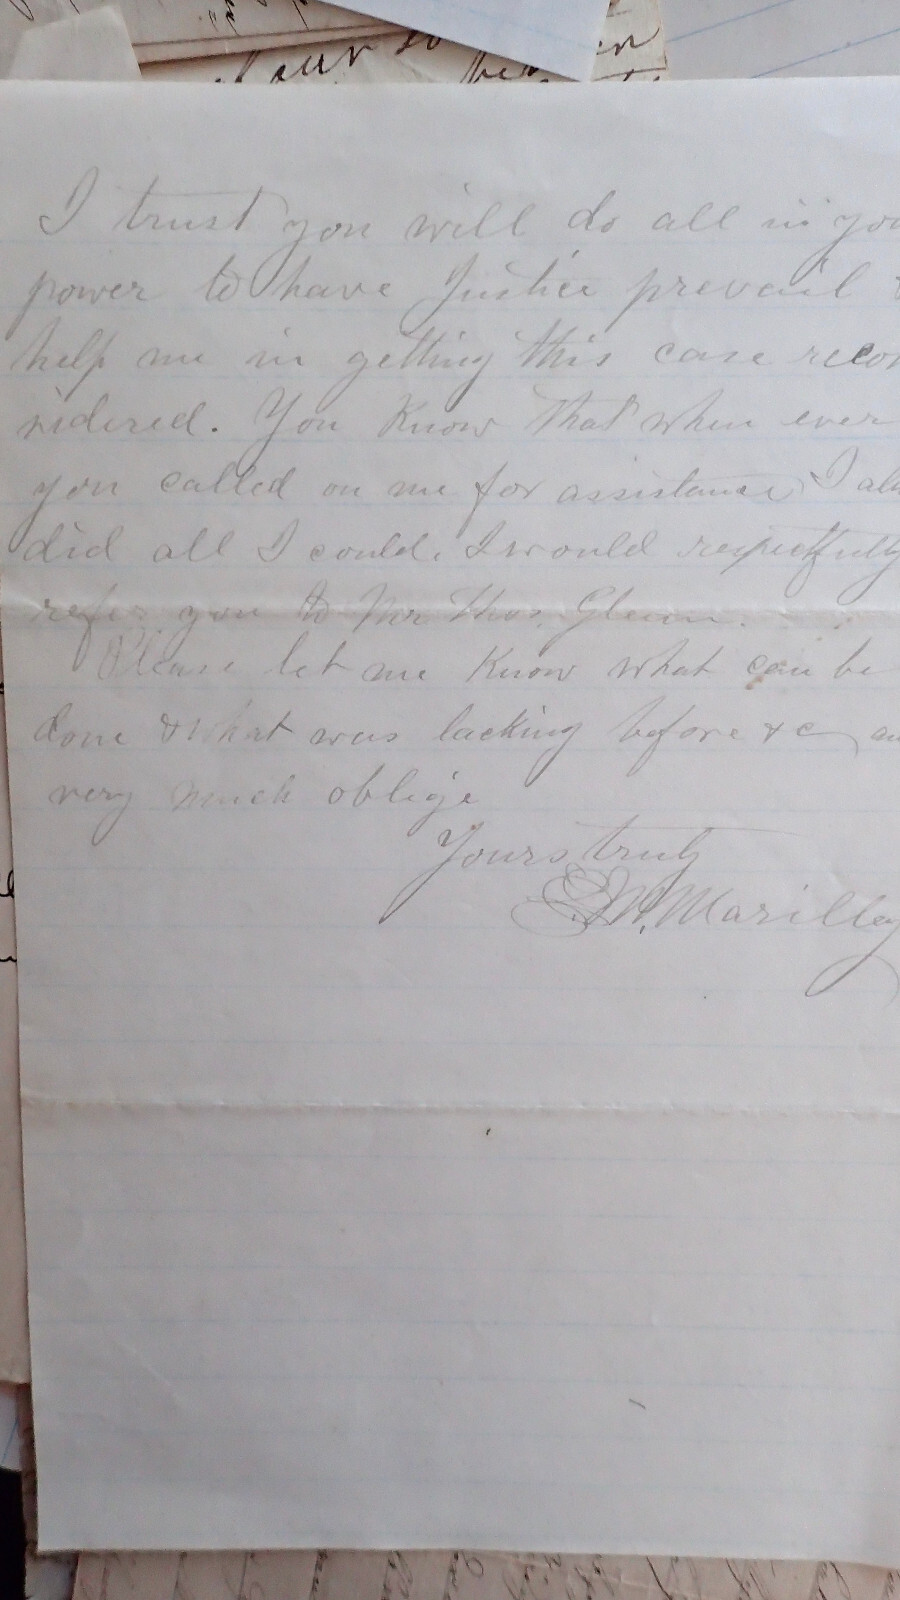 I trust you will do all in you
power to have Justice prevail
help me in getting this case recon
sidered. You Know that when ever
you called on me for assistance I alw
did all I could. I would respectfully
refer you to Mr Thos. Glenn.
Please let me Know what can be
done & what was lacking before &c an
very much oblige
Yours truly
W. Marilley